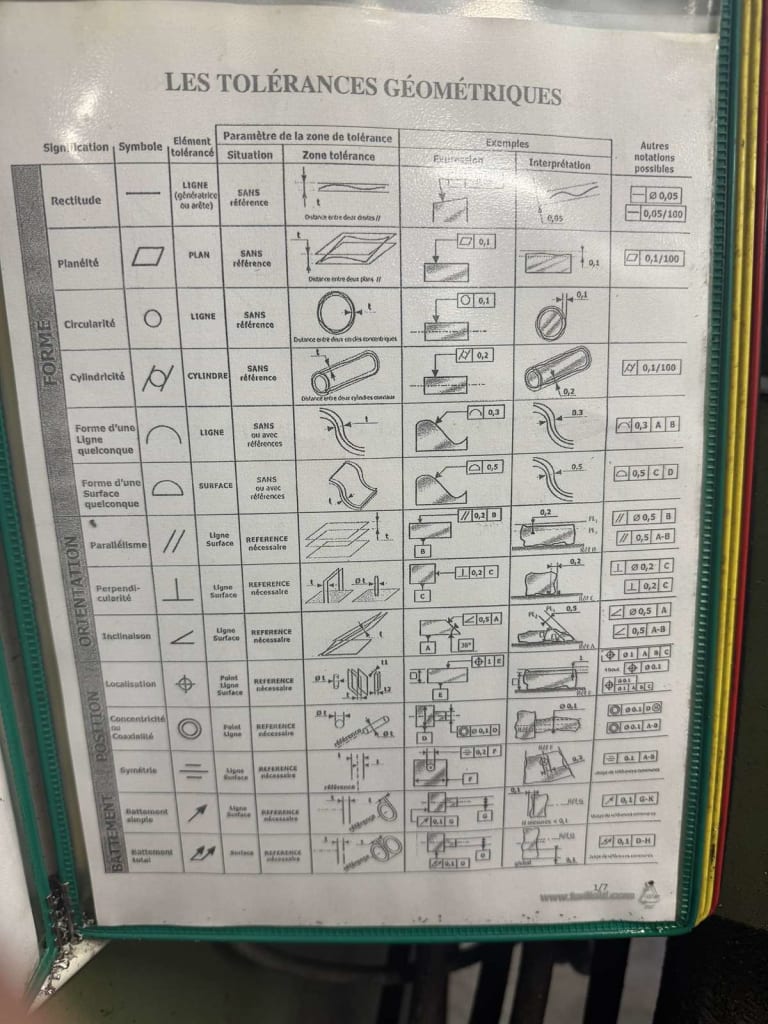 LES TOLÉRANCES GÉOMÉTRIQUES
Signification
Symbole
Elément tolérancé
Paramètre de la zone de tolérance
Situation
Zone tolérance
Exemples
Expression
Interprétation
Autres notations possibles
FORME
Rectitude
LIGNE
(génératrice
ou arête)
SANS
référence
t
Distance entre deux droites //
0,05
Ø 0,05
0,05/100
Planéité
PLAN
SANS
référence
t
Distance entre deux plans //
0,1
0,1
0,1/100
Circularité
LIGNE
SANS
référence
t
Distance entre deux cercles concentriques
0,1
0,1
Cylindricité
CYLINDRE
SANS
référence
t
Distance entre deux cylindres coaxiaux
0,2
0,2
0,1/100
Forme d'une
Ligne
quelconque
LIGNE
SANS
ou avec
références
t
0,3
0.3
0,3 A B
Forme d'une
Surface
quelconque
SURFACE
SANS
ou avec
références
t
0,5
0.5
0,5 C D
ORIENTATION
Parallélisme
//
Ligne
Surface
REFERENCE
nécessaire
t
// 0,2 B
B
0,2
// Ø 0,5 B
// 0,5 A-B
Perpendi-
cularité
Ligne
Surface
REFERENCE
nécessaire
t
Ø t
⊥ 0,2 C
C
0,2
⊥ Ø 0,2 C
⊥ 0,2 C
Inclinaison
Ligne
Surface
REFERENCE
nécessaire
t
0,5 A
A
30°
0,5
Ø 0,5 A
0,5 A-B
POSITION
Localisation
Point
Ligne
Surface
REFERENCE
nécessaire
Ø t
t1
t2
1 E
E
1
Ø 1 A B C
Ø 0.1
Concentricité
ou
Coaxialité
Point
Ligne
REFERENCE
nécessaire
Ø t
référence
Ø t
D
Ø 0,1 D
Ø 0,1
Ø 0.1 D
Ø 0.1 A-B
Symétrie
Ligne
Surface
REFERENCE
nécessaire
t
référence
0,2 F
F
0,2
0.1 A-B
BATTEMENT
Battement
simple
Ligne
Surface
REFERENCE
nécessaire
référence
0,1 G
G
0,1
0,1 G-K
Battement
total
Surface
REFERENCE
nécessaire
référence
global
0,1
0,1 D-H
1/7